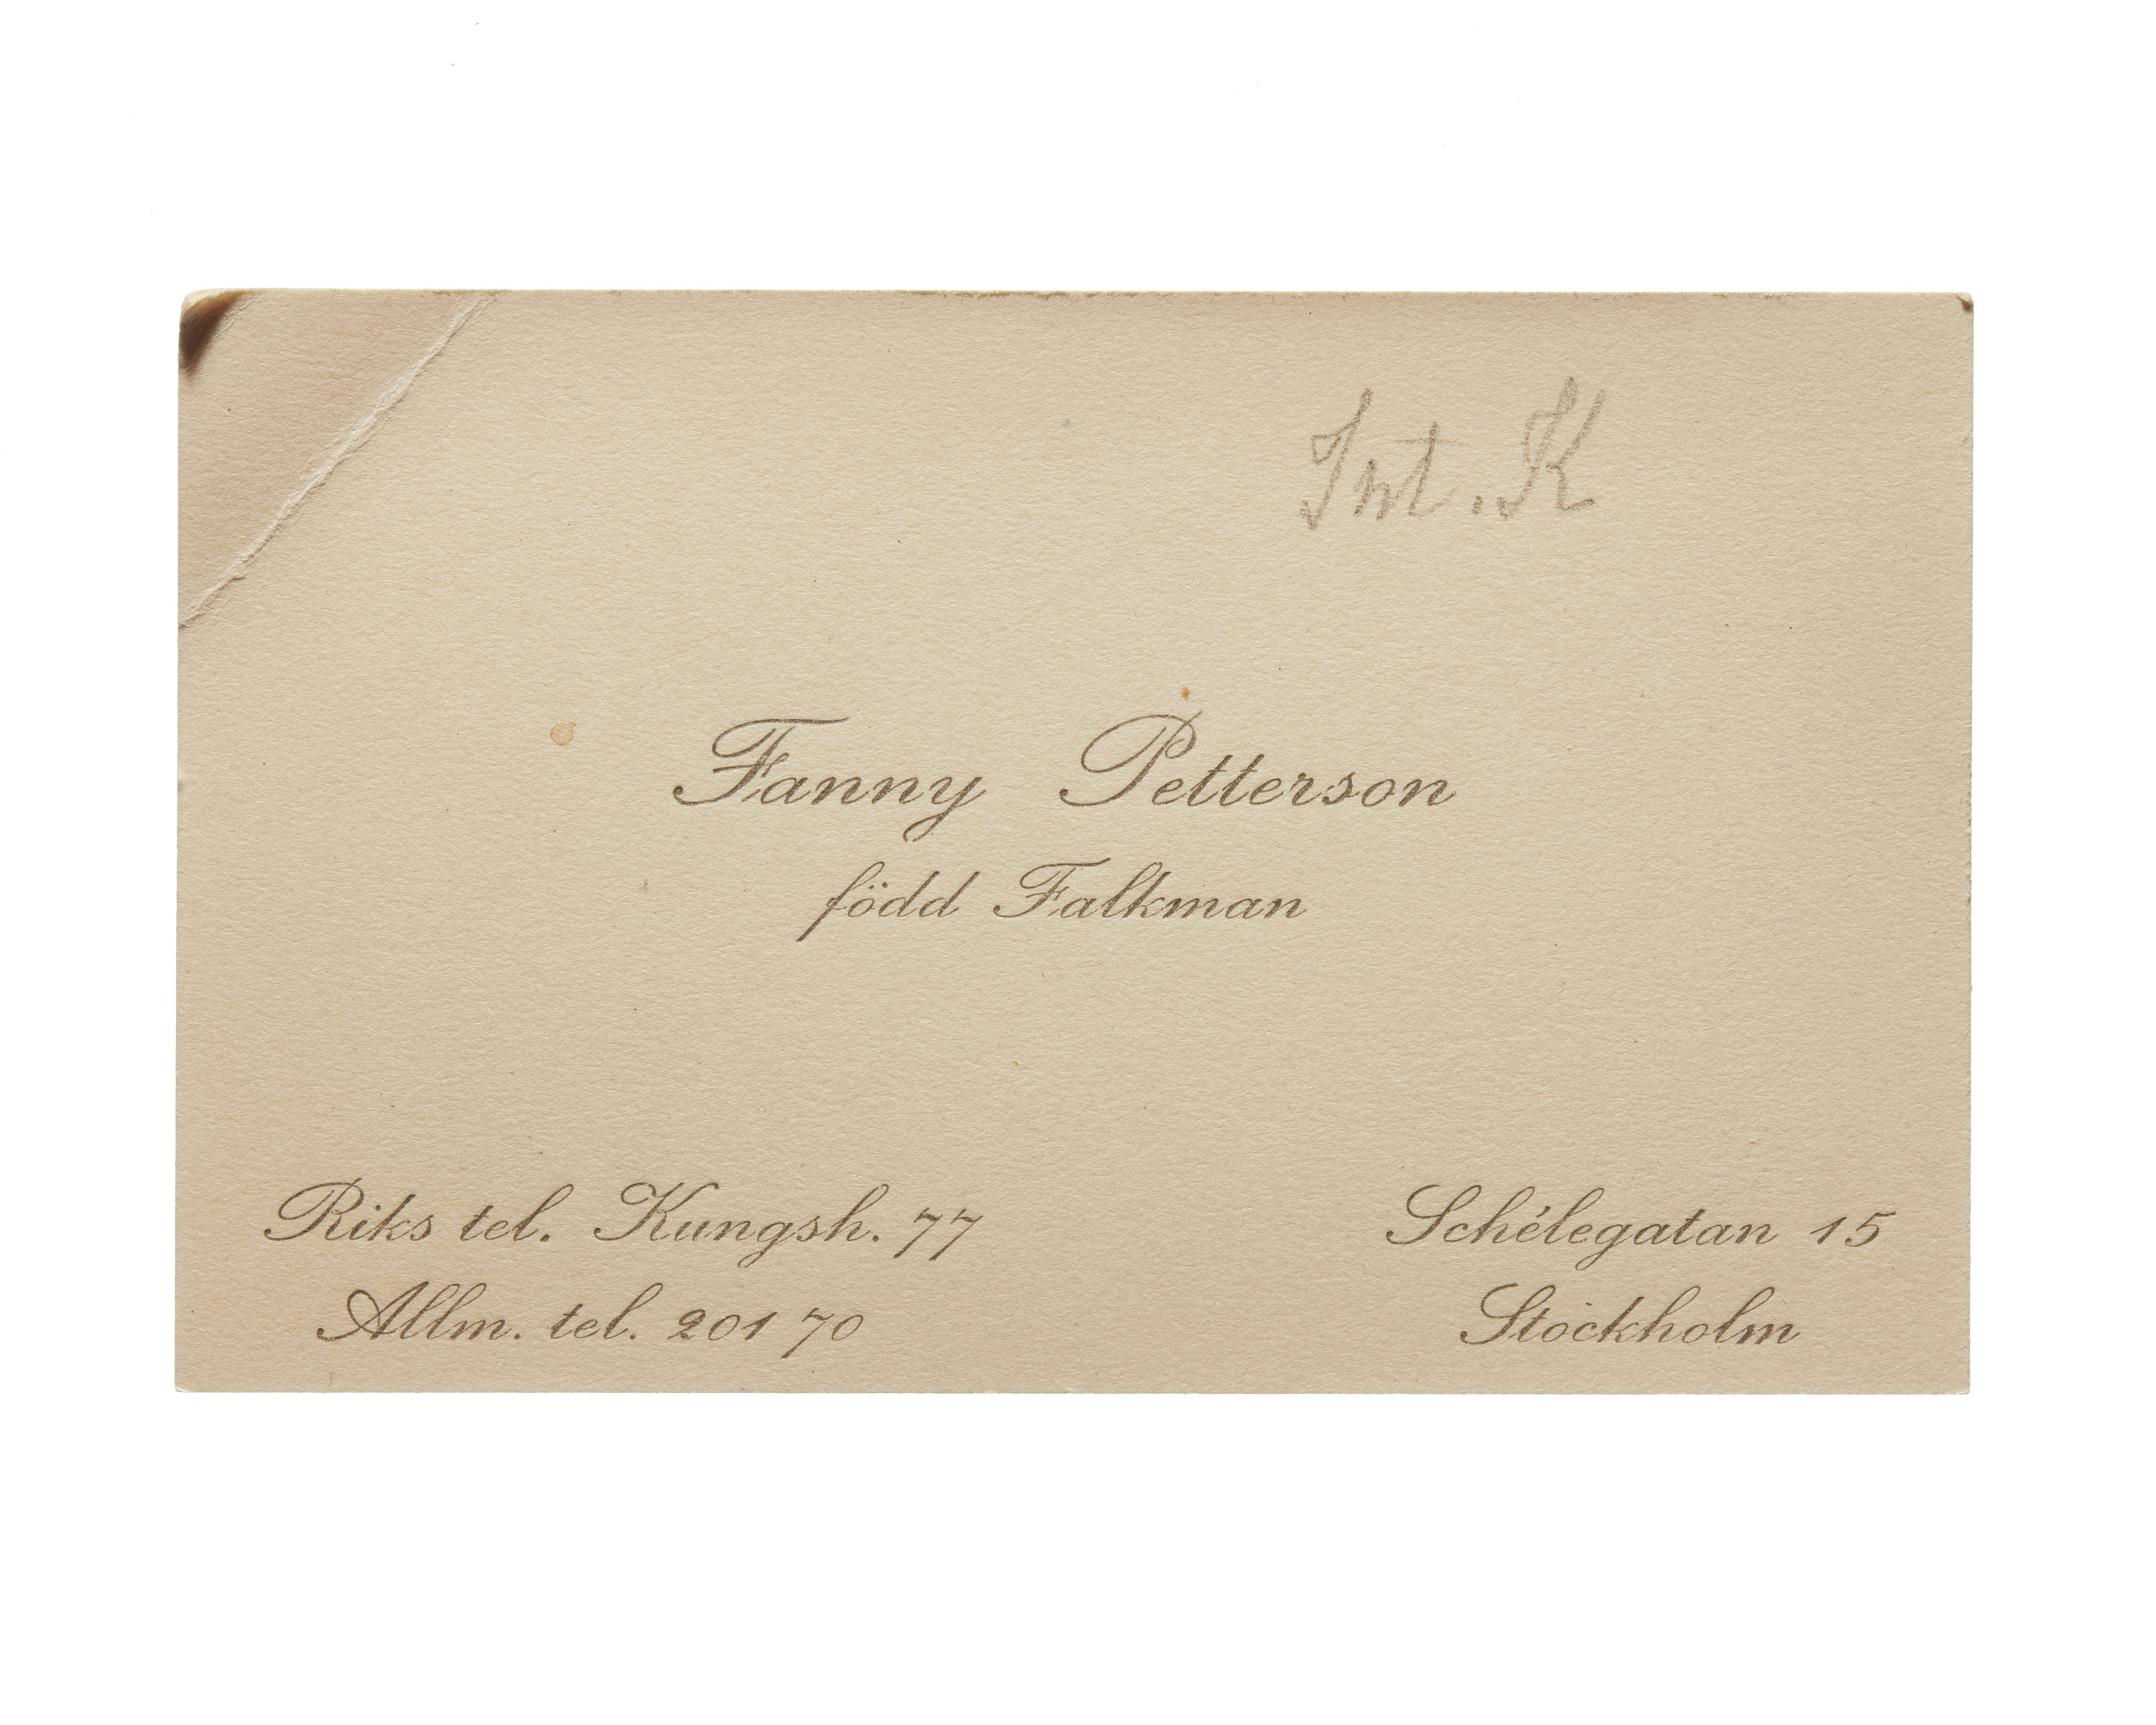 Int. K
Fanny Petterson
född Falkman
Riks tel. Kungsh. 77
Allm. tel. 201 70
Schélegatan 15
Stockholm